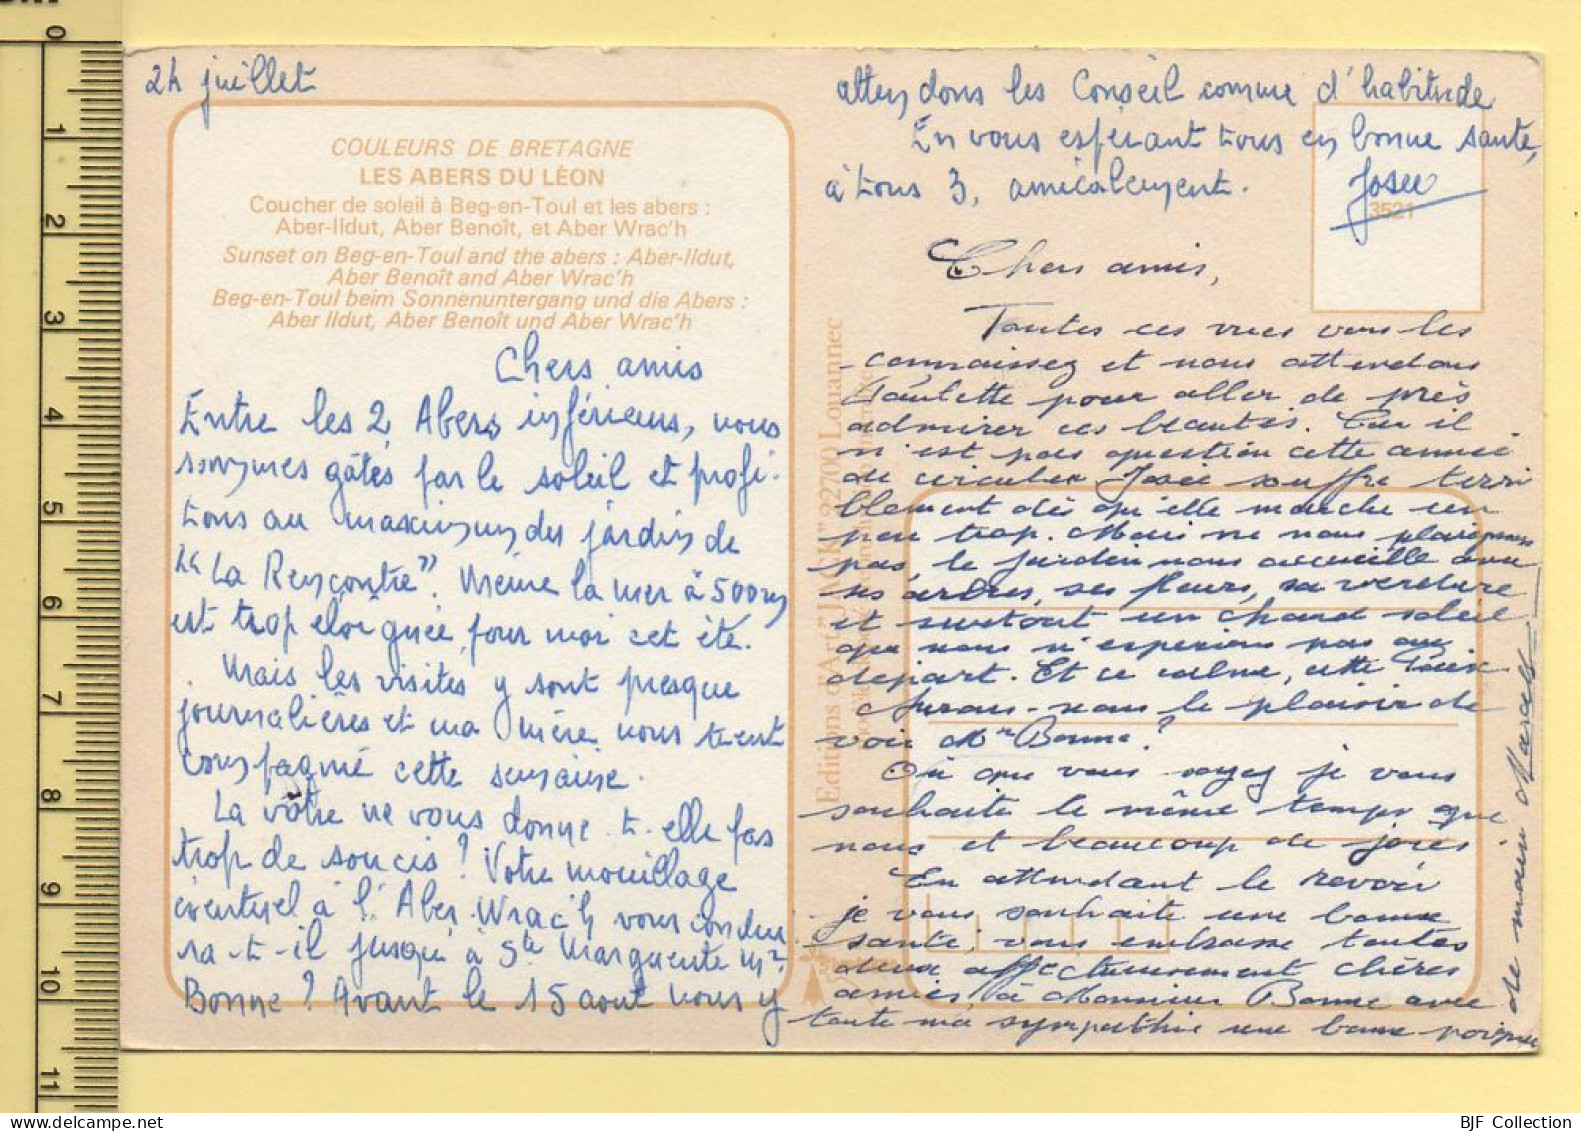 24 juillet
COULEURS DE BRETAGNE
LES ABERS DU LÉON
Coucher de soleil à Beg-en-Toul et les abers :
Aber-Ildut, Aber Benoît, et Aber Wrac'h
Sunset on Beg-en-Toul and the abers : Aber-Ildut,
Aber Benoît and Aber Wrac'h
Beg-en-Toul beim Sonnenuntergang und die Abers :
Aber Ildut, Aber Benoît und Aber Wrac'h
Chers amis
Entre les 2 Abers inférieurs, nous
sommes gâtés par le soleil et profi-
tons au maximum du jardin de
"La Rencontre". Même la mer à 500m
est trop éloignée pour moi cet été.
Mais les visites y sont presque
journalières et ma mère nous tient
compagnie cette semaine.
La vôtre ne vous donne-t-elle pas
trop de soucis ? Votre mouillage
éventuel à l'Aber Wrac'h vous condui-
ra-t-il jusqu'à Ste Marguerite Mr
Bonne ? Avant le 15 août nous y
attendons les Conseil comme d'habitude
En vous espérant tous en bonne santé,
à tous 3, amicalement.
Josée
3521
Editions d'Art "JACK" 22700 Louannec
Chers amis,
Toutes ces vues vous les
connaissez et nous attendons
Paulette pour aller de près
admirer ces beautés. Car il
n'est pas question cette année
de circuler Josée souffre terri
blement dès qu'elle marche un
peu trop. Mais ne nous plaignons
pas, le jardin nous accueille avec
ses arbres, ses fleurs, sa verdure
et surtout un chaud soleil
que nous n'espérions pas au
départ. Et ce calme, cette paix
Aurons-nous le plaisir de
voir Mr Bonne ?
Où que vous soyez je vous
souhaite le même temps que
nous et beaucoup de joies.
En attendant le revoir
je vous souhaite une bonne
santé, vous embrasse toutes
deux affectueusement chères
amies, à Monsieur Bonne avec
toute ma sympathie une bonne poignée
de main Marcel
BJF Collection